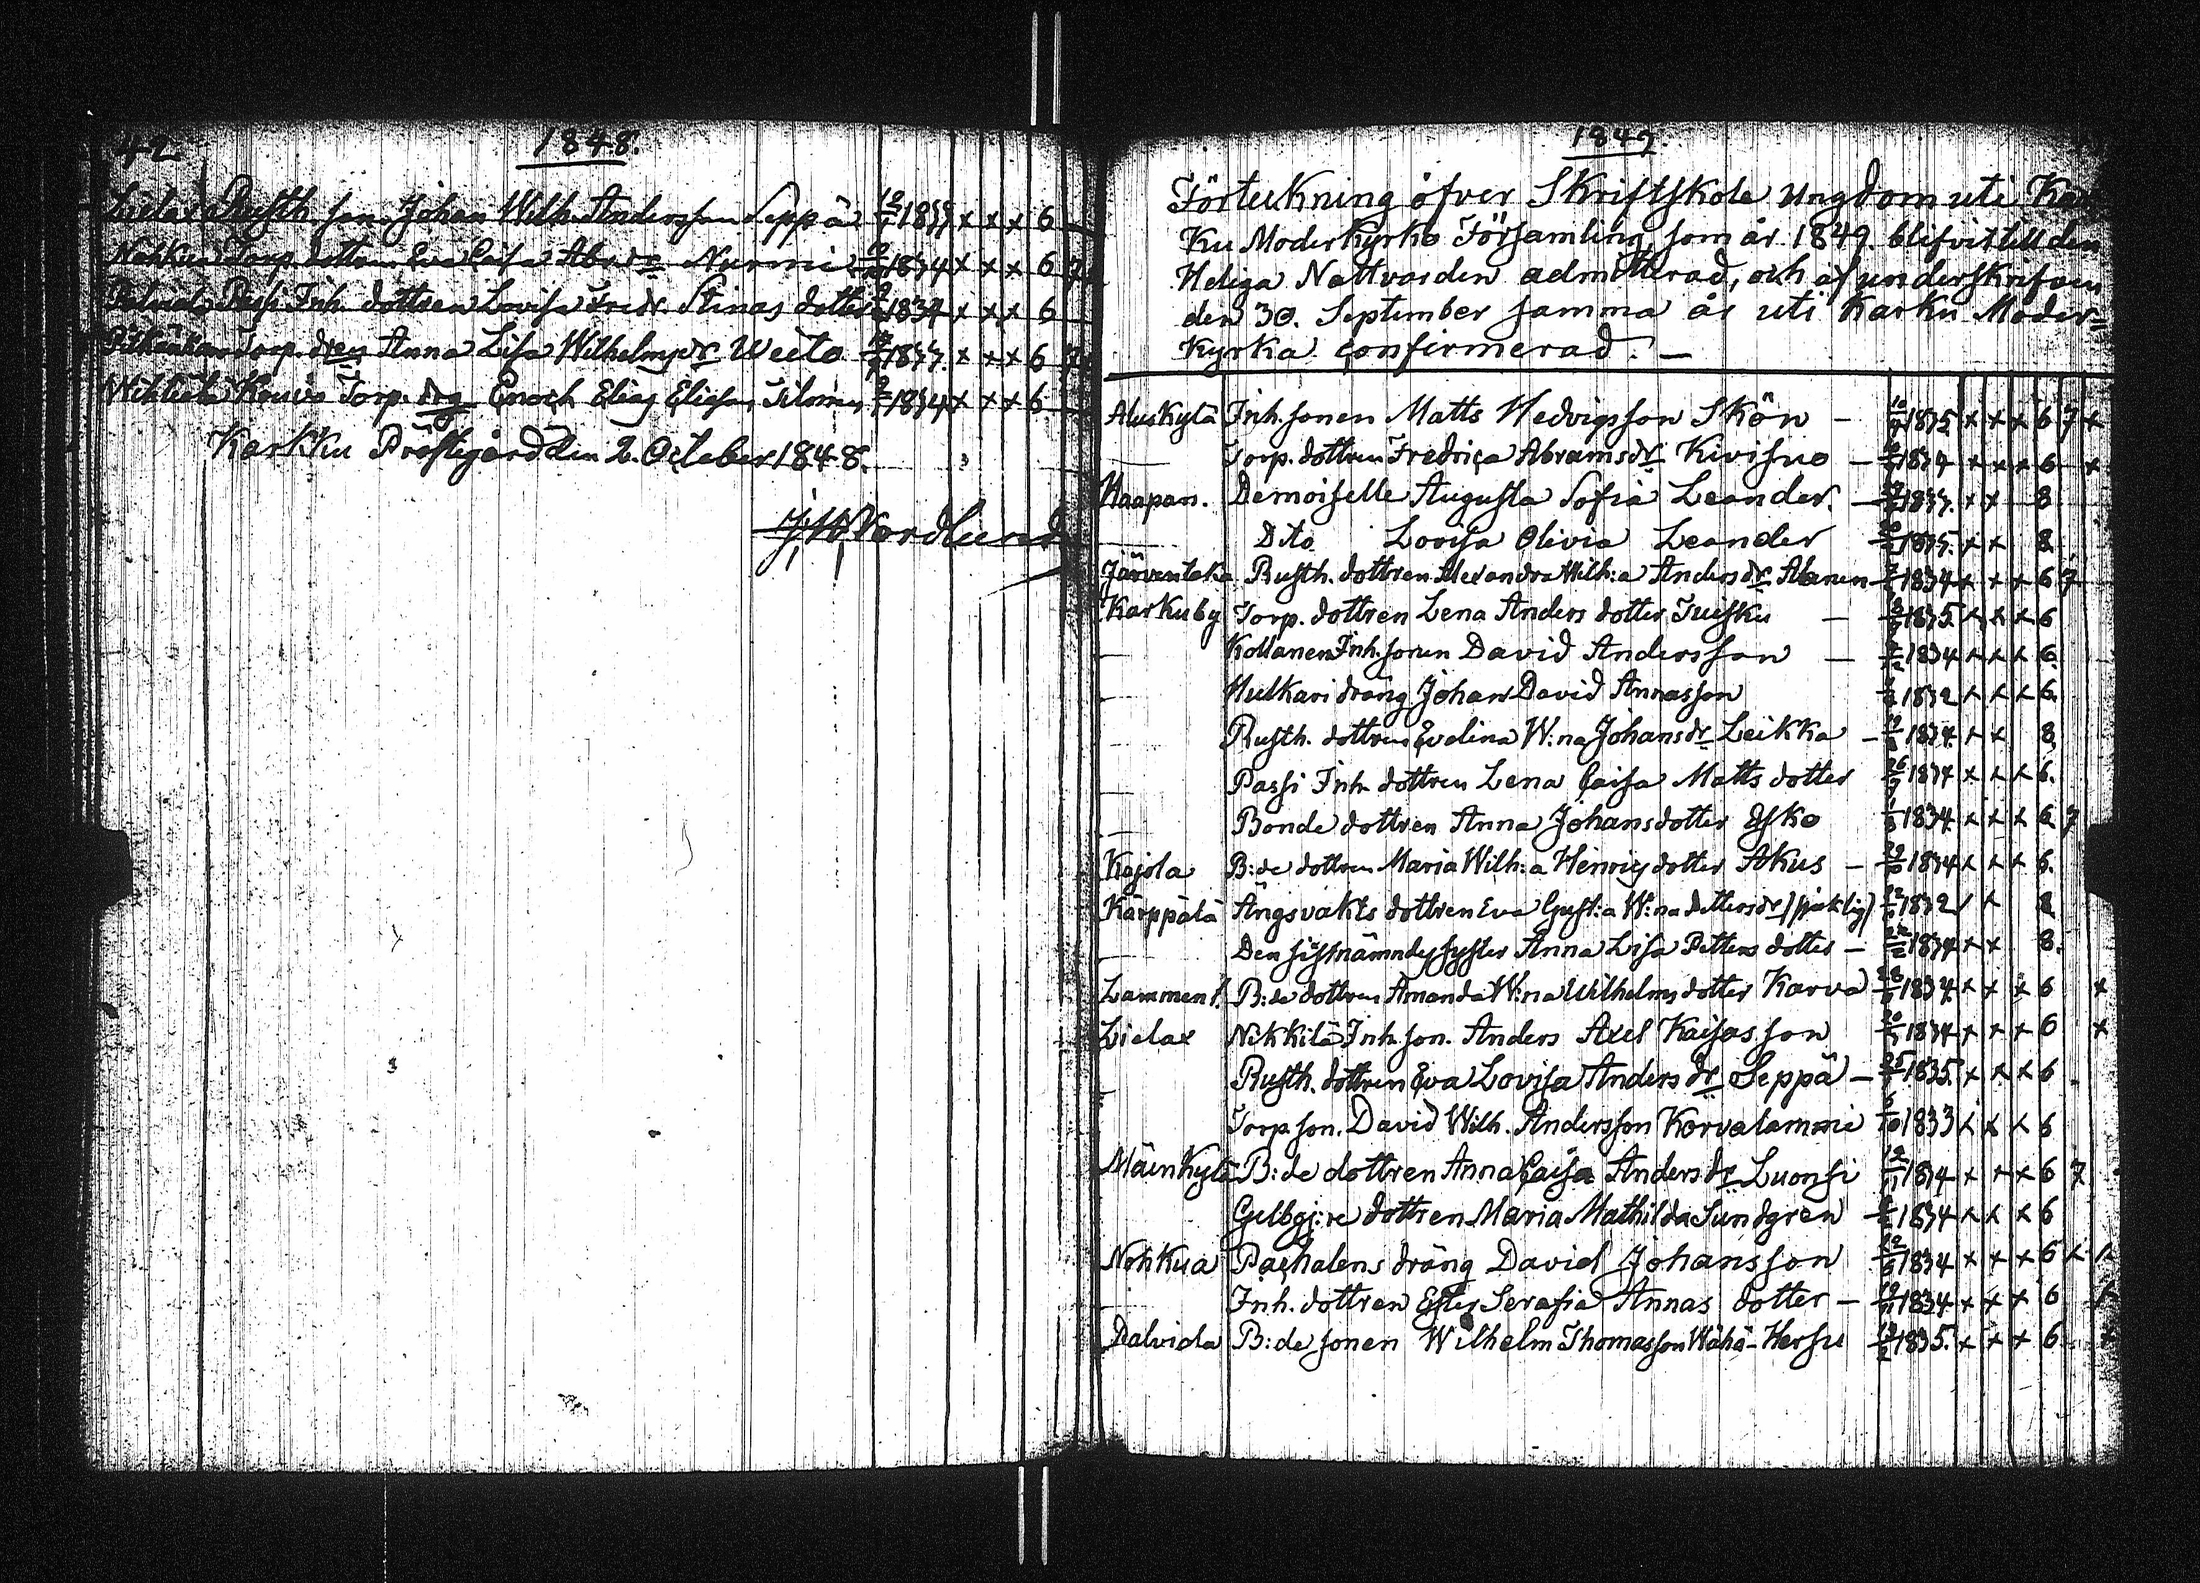 42
1848.
Lielax Rusth. son Johan Wilh. Andersson Seppä 1833 x x x 6
Nohkua Torp. dottren Eva Caisa Abr. dr Nurmi 1834 x x x 6 7
Inh. dottren Lovisa Fredr. Stinas dotter 1834 x x x 6
Torp. dren Anna Lisa Wilhelms dr Weito 1833. x x x 6 7
Torp. drg Enoch Elias Eliasson 1834 x x x 6
Karkku Prästegård den 2. October 1848.
Nordlund
1849.
Förteckning öfver Skriftskole Ungdom uti Kar
Ku Moderkyrko Församling, som år 1849. blifvit till den
Heliga Nattvarden admitterad, och af underskrifven
den 30. September samma år uti Karku Moder=
Kyrka confirmerad. —
Aluskylä Inh. sonen Matts Hedvigsson Skön — 1835 x x x 6 7 x
— Torp. dottren Fredrica Abrams dr Kivisuo — 1834 x x x 6 x
Haapan. Demoiselle Augusta Sofia Leander. — 1833. x x 8
— Dito Lovisa Olivia Leander 1835. x x 8
Järventaka Rusth. dottren Alexandra Wilh:a Anders dr Alanen 1834 x x x 6 7
Karkuby Torp. dottren Lena Anders dotter Tuisku — 1835 x x x 6
— Kollanen Inh. sonen David Andersson — 1834 x x x 6
— Hulkari dräng Johan David Annasson 1832 x x x 6.
— Rusth. dottren Evelina W:na Johans dr Leikka — 12/8 1834 x x 8
— Passi Inh. dottren Lena Caisa Matts dotter 26/7 1834 x x x 6.
— Bonde dottren Anna Johans dotter Esko 1834 x x x 6 7
Kojola B:de dottren Maria Wilh:a Henrics dotter Akus — 1834 x x x 6.
Kärppälä Ängsvakts dottren Eva Gust:a W:na Petters dr (sjuklig) 1832 x x 8
— Den sistnämndes syster Anna Lisa Petters dotter — 1834 x x 8.
Lamment. B:de dottren Amanda W:na Wilhelms dotter Karva 1834 x x x 6 x
Lielax Nikkilä Inh. son. Anders Axel Kaisasson 1834 x x x 6 x
Rusth. dottren Eva Lovisa Anders dr Seppä — 25/1 1835 x x x 6
Torp. son. David Wilh. Andersson Korvalammi 6/10 1833 x x x 6
Mäenkylä B:de dottren Anna Caisa Anders dr Luonsi 12/11 1834 x x x 6 7
Gelbgj:re dottren Maria Mathilda Sundgren 1834 x x x 6
Nohkua Pachalens dräng David Johansson 1834 x x x 6 x x
— Inh. dottren Ester Serafia Annas dotter — 19/11 1834 x x x 6 x
Palvida B:de sonen Wilhelm Thomasson Wähä-Hersu 1835. x x x 6. x